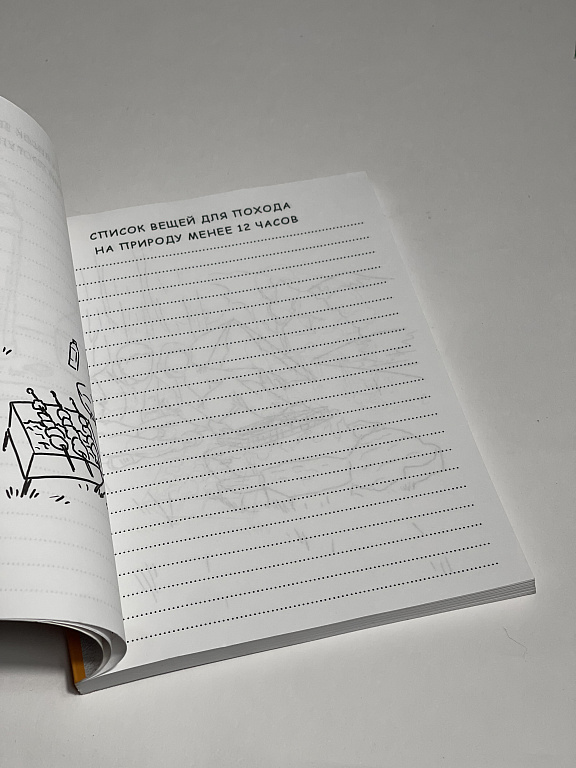 СПИСОК ВЕЩЕЙ ДЛЯ ПОХОДА
НА ПРИРОДУ МЕНЕЕ 12 ЧАСОВ